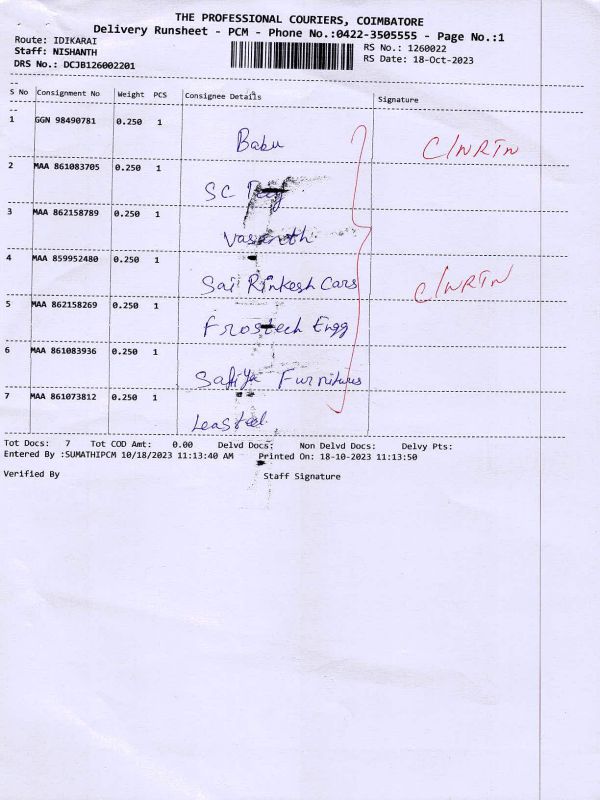 THE PROFESSIONAL COURIERS, COIMBATORE
Delivery Runsheet - PCM - Phone No.:0422-3505555 - Page No.:1
Route: IDIKARAI
RS No.: 1260022
Staff: NISHANTH
RS Date: 18-Oct-2023
DRS No.: DCJB126002201
S No Consignment No Weight PCS Consignee Details Signature
1 GGN 98490781 0.250 1 Babu C/NRTN
2 MAA 861083705 0.250 1 SC
3 MAA 862158789 0.250 1 Vasanth
4 MAA 859952480 0.250 1 Sai Rinkesh Cars C/NRTN
5 MAA 862158269 0.250 1 Frostech Engg
6 MAA 861083936 0.250 1 Safiya Furnitures
7 MAA 861073812 0.250 1 Leasteel
Tot Docs: 7 Tot COD Amt: 0.00 Delvd Docs: Non Delvd Docs: Delvy Pts:
Entered By :SUMATHIPCM 10/18/2023 11:13:40 AM Printed On: 18-10-2023 11:13:50
Verified By Staff Signature